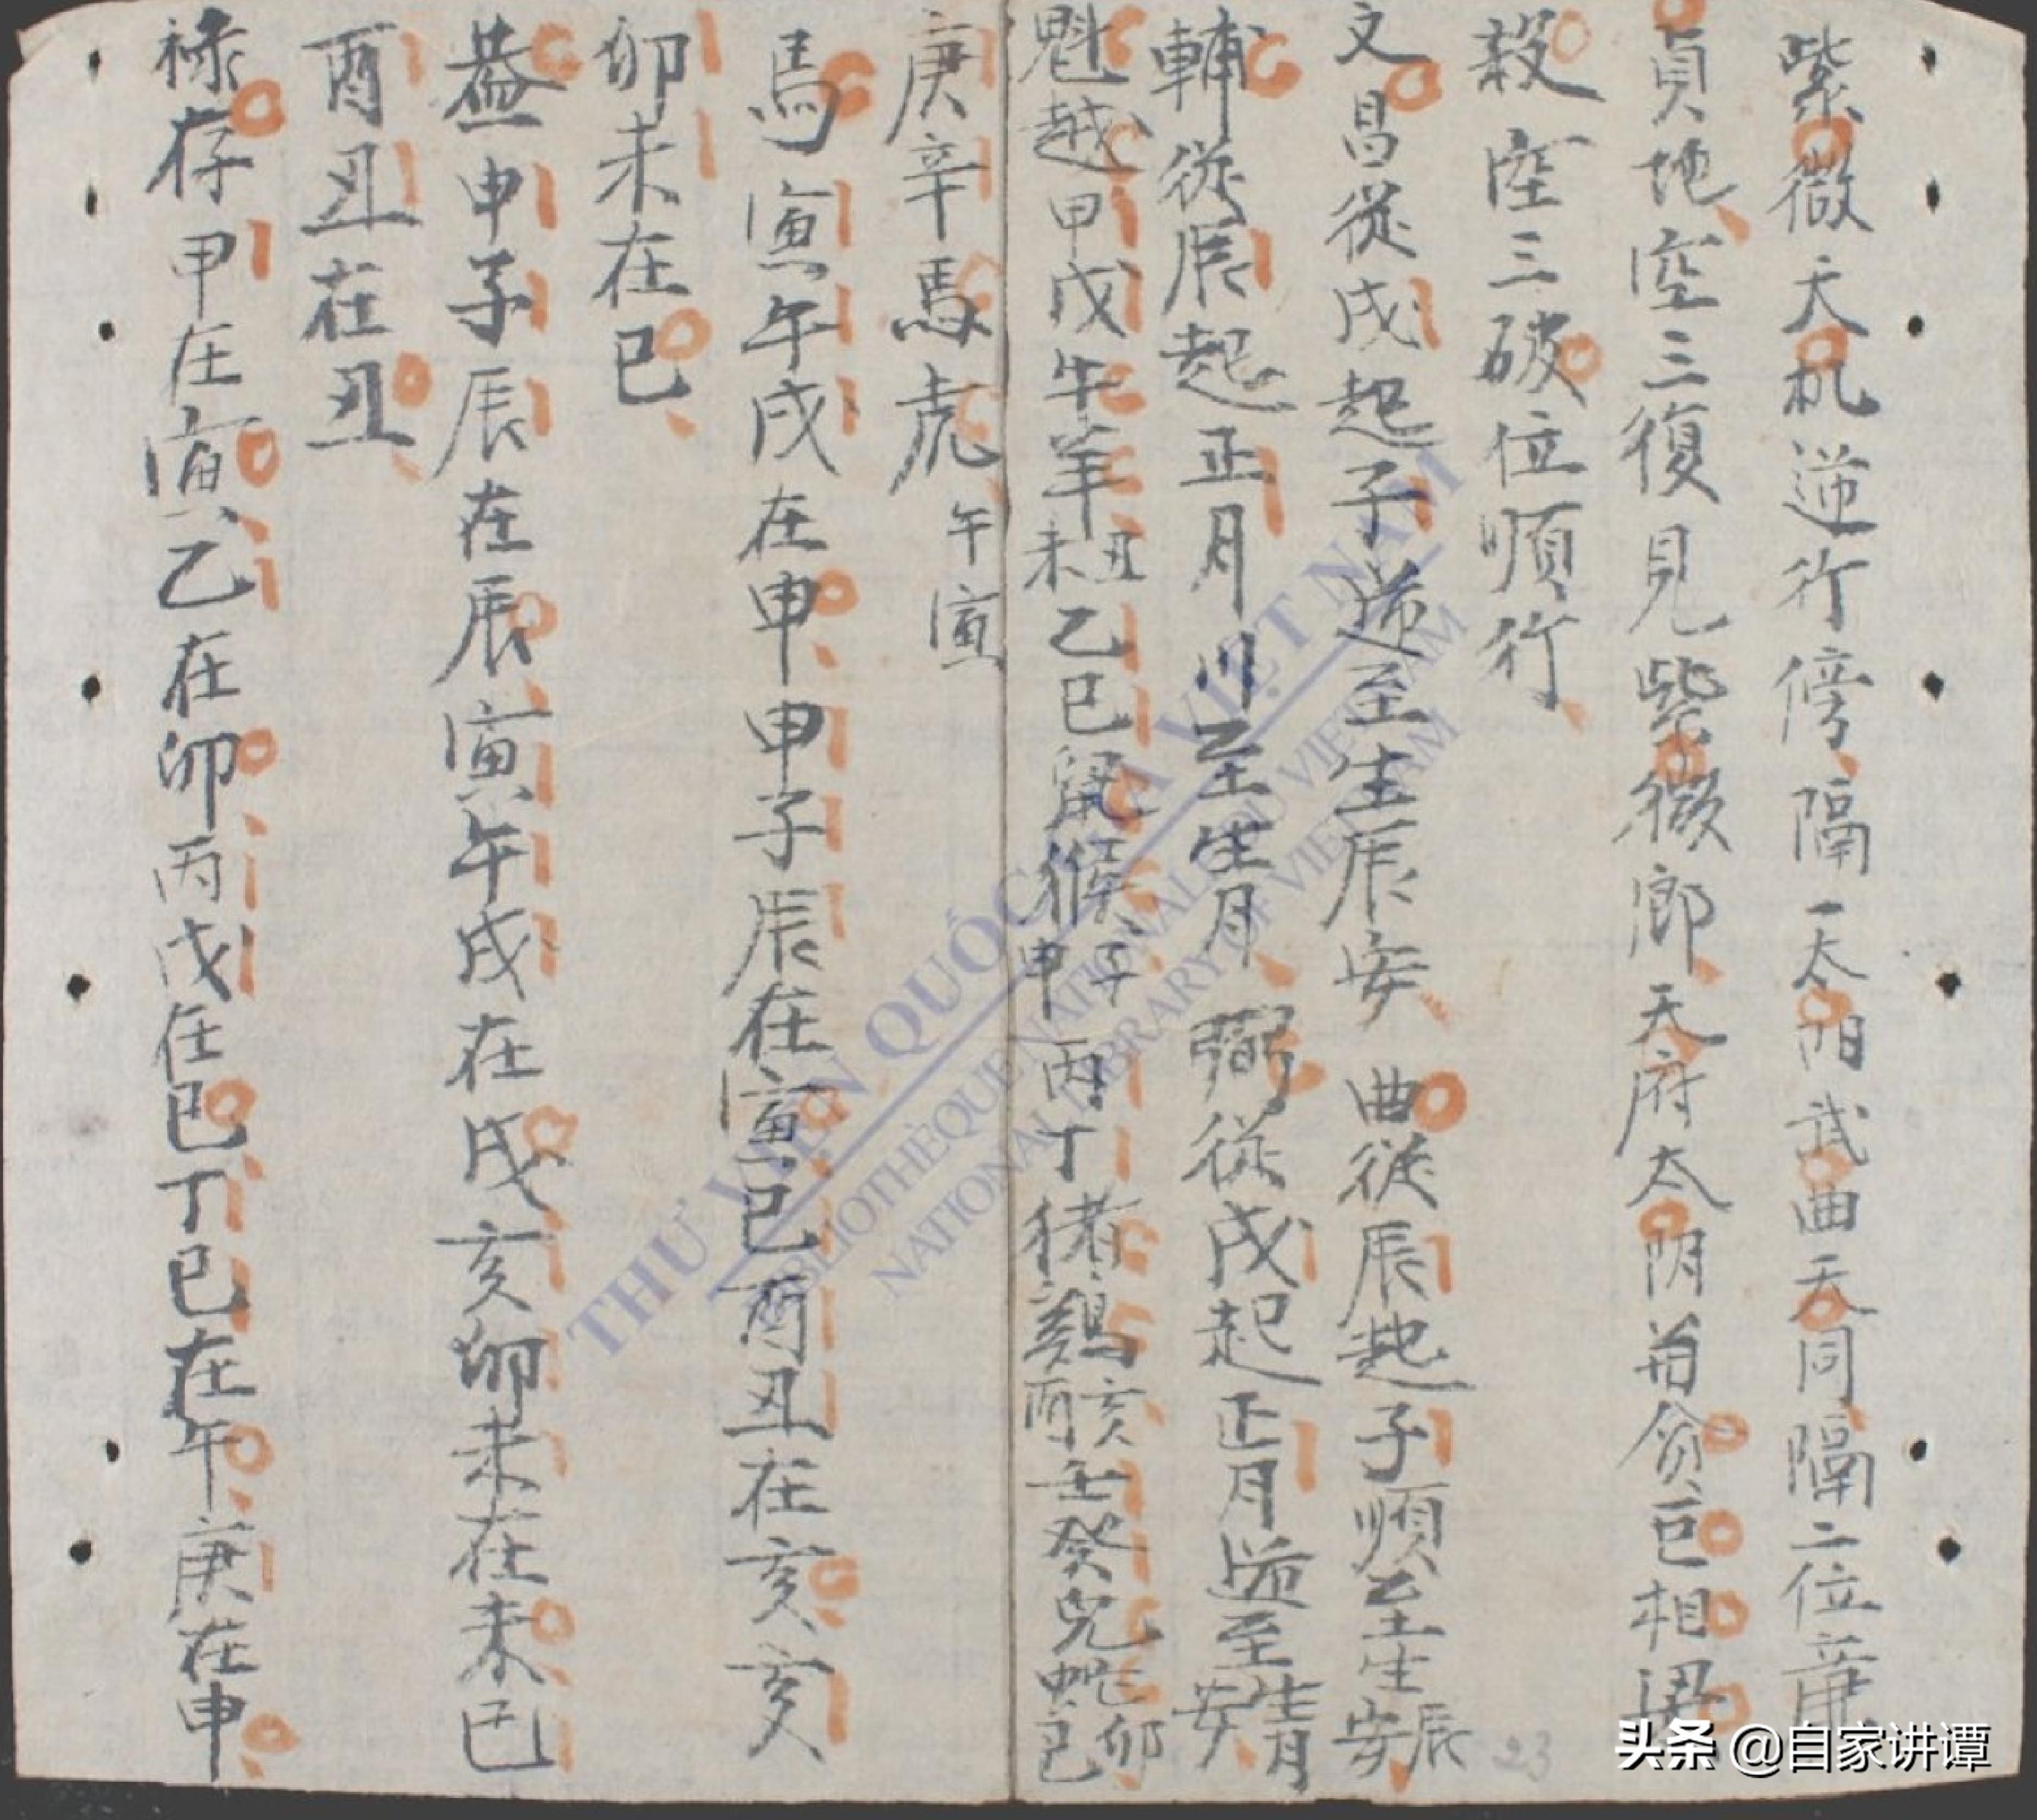 紫微天机逆行傍隔一太阳武曲天同隔二位亷
貞地空三復見紫微郎天府太阴并貪巨相梁
殺空三破位順行
文昌從戌起子逆至生辰安曲從辰起子順至生辰安
輔從辰起正月川至生月弼從戌起正月逆至生月安
魁越甲戊牛羊丑未乙己鼠猴子申丙丁猪鷄亥酉壬癸兔蛇卯巳
庚辛馬虎午寅
馬寅午戌在申申子辰在寅巳酉丑在亥亥
卯未在巳
葢申子辰在辰寅午戌在戌亥卯未在未巳
酉丑在丑
祿存甲在寅乙在卯丙戊在巳丁己在午庚在申
THƯ VIỆN QUỐC GIA VIỆT NAM
BIBLIOTHÈQUE NATIONALE DU VIETNAM
NATIONAL LIBRARY OF VIETNAM
23
头条 @自家讲谭